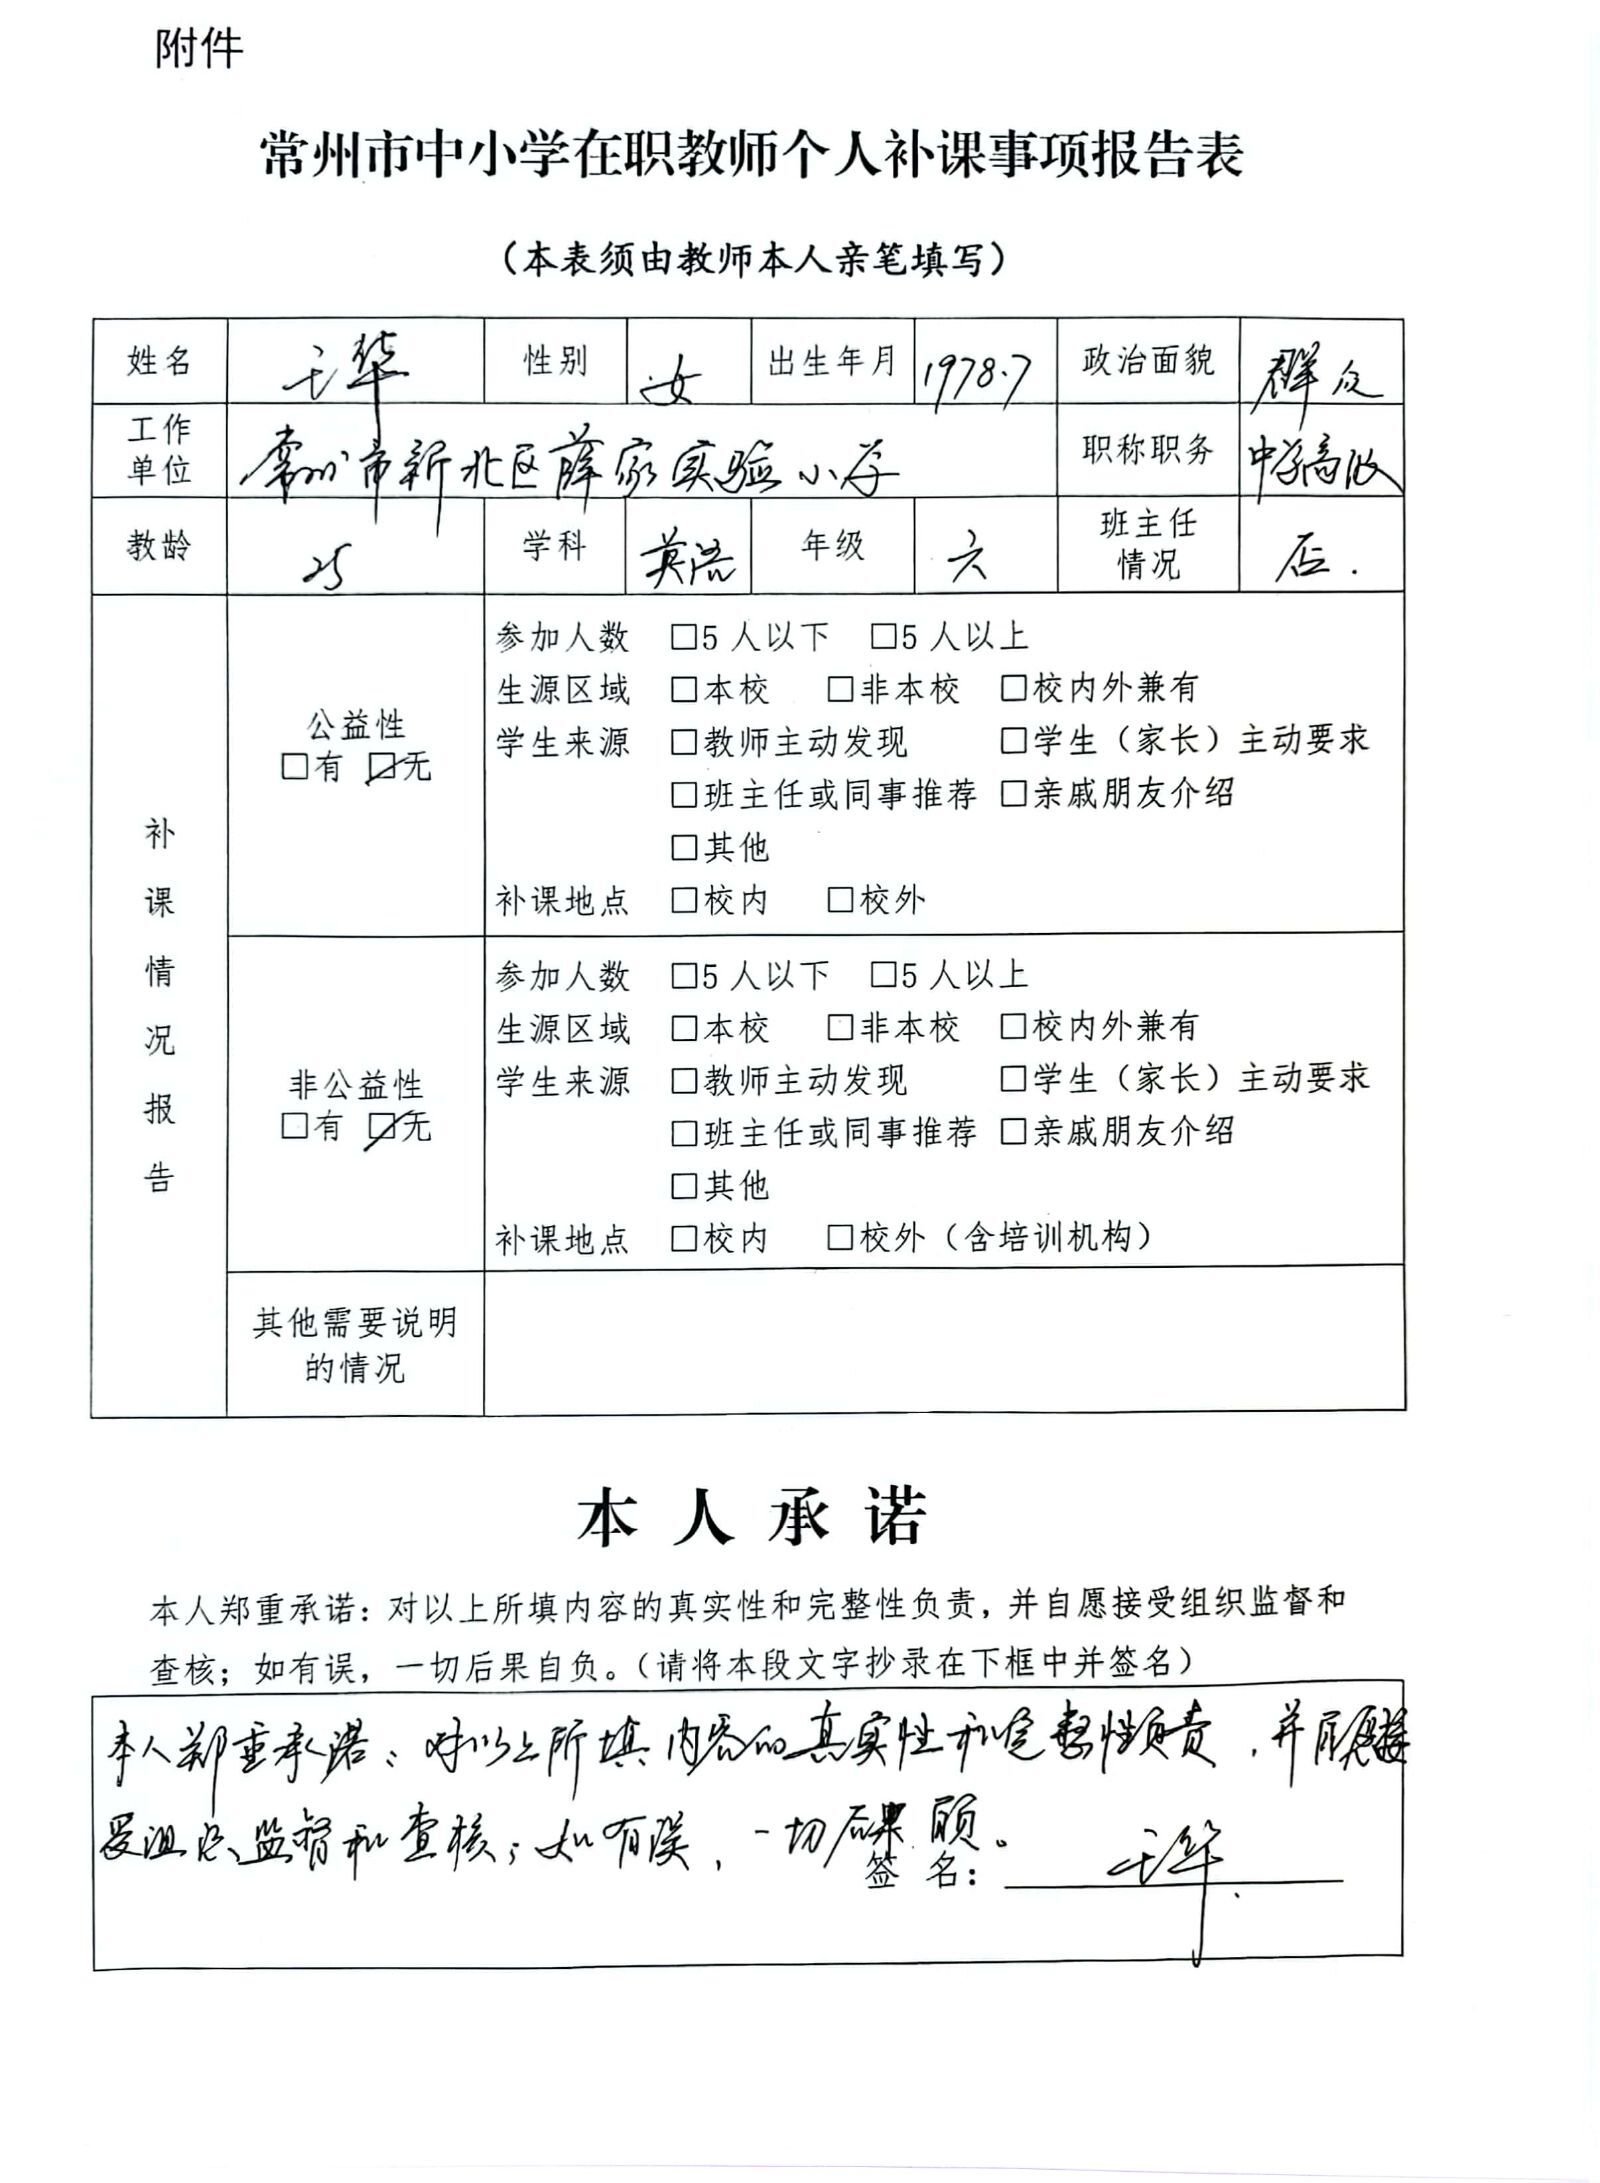 附件
常州市中小学在职教师个人补课事项报告表
（本表须由教师本人亲笔填写）
姓名 王华 性别 女 出生年月 1978.7 政治面貌 群众
工作单位 常州市新北区薛家实验小学 职称职务 中学高级
教龄 25 学科 英语 年级 六 班主任情况 否.
补课情况报告
公益性
□有 ☑无
参加人数 □5人以下 □5人以上
生源区域 □本校 □非本校 □校内外兼有
学生来源 □教师主动发现 □学生（家长）主动要求
□班主任或同事推荐 □亲戚朋友介绍
□其他
补课地点 □校内 □校外
非公益性
□有 ☑无
参加人数 □5人以下 □5人以上
生源区域 □本校 □非本校 □校内外兼有
学生来源 □教师主动发现 □学生（家长）主动要求
□班主任或同事推荐 □亲戚朋友介绍
□其他
补课地点 □校内 □校外（含培训机构）
其他需要说明
的情况
本人承诺
本人郑重承诺：对以上所填内容的真实性和完整性负责，并自愿接受组织监督和
查核；如有误，一切后果自负。（请将本段文字抄录在下框中并签名）
本人郑重承诺：对以上所填内容的真实性和完整性负责，并自愿接
受组织监督和查核；如有误，一切后果自负。
签 名： 王华